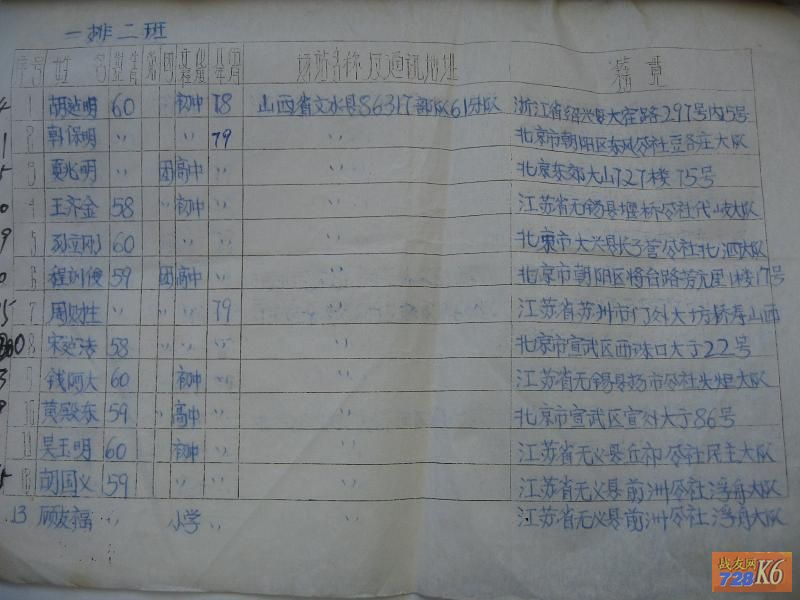 一排二班
序号 姓名 出生 年月 党 团 文化程度 入伍年月 该站名称及通讯地址 籍贯
4 1 胡延明 60 初中 78 山西省文水县86317部队61分队 浙江省绍兴县大窑路297号内5号
1 2 韩保明 〃 〃 79 北京市朝阳区东风公社豆各庄大队
5 3 夏兆明 〃 团 高中 〃 〃 北京东郊大山727楼75号
0 4 王齐金 58 〃 初中 〃 江苏省无锡县堰桥公社代山大队
9 5 孙立刚 60 〃 〃 〃 北京市大兴县长子营公社北泗大队
0 6 程训俊 59 团 高中 〃 〃 北京市朝阳区将台路芳元里1楼17号
5 7 周 生 〃 〃 〃 79 江苏省苏州市 门外大 山西
0 8 宋延涛 58 〃 〃 〃 北京市宣武区西珠口大于22号
3 9 钱阿大 60 初中 〃 〃 江苏省无锡县扬市公社 大队
9 10 黄殿东 59 〃 高中 〃 〃 北京市宣武区宣外大于86号
11 吴玉明 60 初中 〃 〃 江苏省无义县 公社民主大队
5 12 胡国义 59 〃 〃 〃 江苏省无义县前洲公社浮舟大队
13 顾友福 〃 小学 〃 〃 江苏省无义县前洲公社浮舟大队
战友网
728 K6